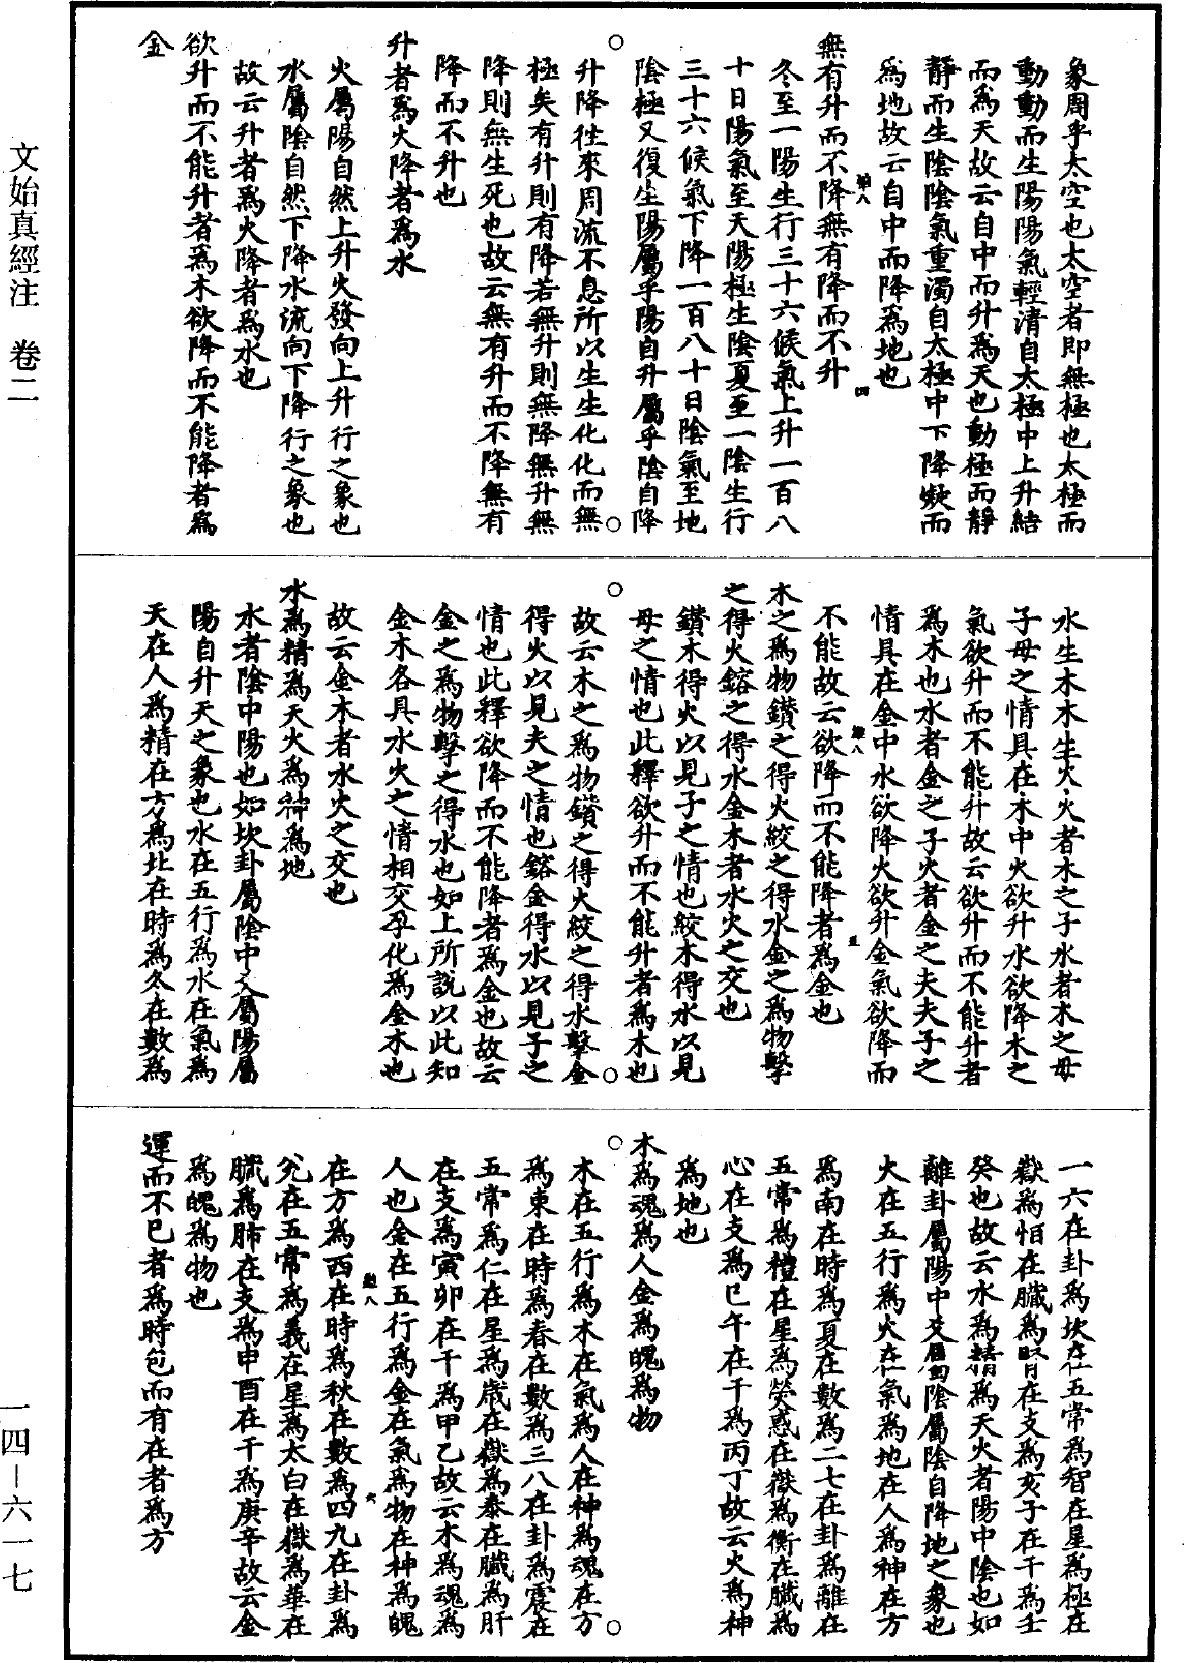 文始真經注　卷二
象周乎太空也太空者即無極也太極而
動動而生陽陽氣輕清自太極中上升結
而為天故云自中而升為天也動極而靜
靜而生陰陰氣重濁自太極中下降凝而
為地故云自中而降為地也
無有升而不降無有降而不升
冬至一陽生行三十六候氣上升一百八
十日陽氣至天陽極生陰夏至一陰生行
三十六候氣下降一百八十日陰氣至地
陰極又復生陽屬乎陽自升屬乎陰自降
升降徃來周流不息所以生生化化而無
極矣有升則有降若無升則無降無升無
降則無生死也故云無有升而不降無有
降而不升也
升者為火降者為水
火屬陽自然上升火發向上升行之象也
水屬陰自然下降水流向下降行之象也
故云升者為火降者為水也
欲升而不能升者為木欲降而不能降者為
金
水生木木生火火者木之子水者木之母
子母之情具在木中火欲升水欲降木之
氣欲升而不能升故云欲升而不能升者
為木也水者金之子火者金之夫夫子之
情具在金中水欲降火欲升金氣欲降而
不能故云欲降而不能降者為金也
木之為物鑽之得火絞之得水金之為物擊
之得火鎔之得水金木者水火之交也
鑽木得火以見子之情也絞木得水以見
母之情也此釋欲升而不能升者為木也
故云木之為物鑽之得火絞之得水擊金
得火以見夫之情也鎔金得水以見子之
情也此釋欲降而不能降者為金也故云
金之為物擊之得水也如上所說以此知
金木各具水火之情相交孕化為金木也
故云金木者水火之交也
水為精為天火為神為地
水者陰中陽也如坎卦屬陰中爻屬陽屬
陽自升天之象也水在五行為水在氣為
天在人為精在方為北在時為冬在數為
一六在卦為坎在五常為智在星為極在
嶽為恒在臟為腎在支為亥子在干為壬
癸也故云水為精為天火者陽中陰也如
離卦屬陽中爻屬陰屬陰自降地之象也
火在五行為火在氣為地在人為神在方
為南在時為夏在數為二七在卦為離在
五常為禮在星為熒惑在嶽為衡在臟為
心在支為巳午在干為丙丁故云火為神
為地也
木為魂為人金為魄為物
木在五行為木在氣為人在神為魂在方
為東在時為春在數為三八在卦為震在
五常為仁在星為歲在嶽為泰在臟為肝
在支為寅卯在干為甲乙故云木為魂為
人也金在五行為金在氣為物在神為魄
在方為西在時為秋在數為四九在卦為
兌在五常為義在星為太白在嶽為華在
臟為肺在支為申酉在干為庚辛故云金
為魄為物也
運而不已者為時包而有在者為方
一四—六一七